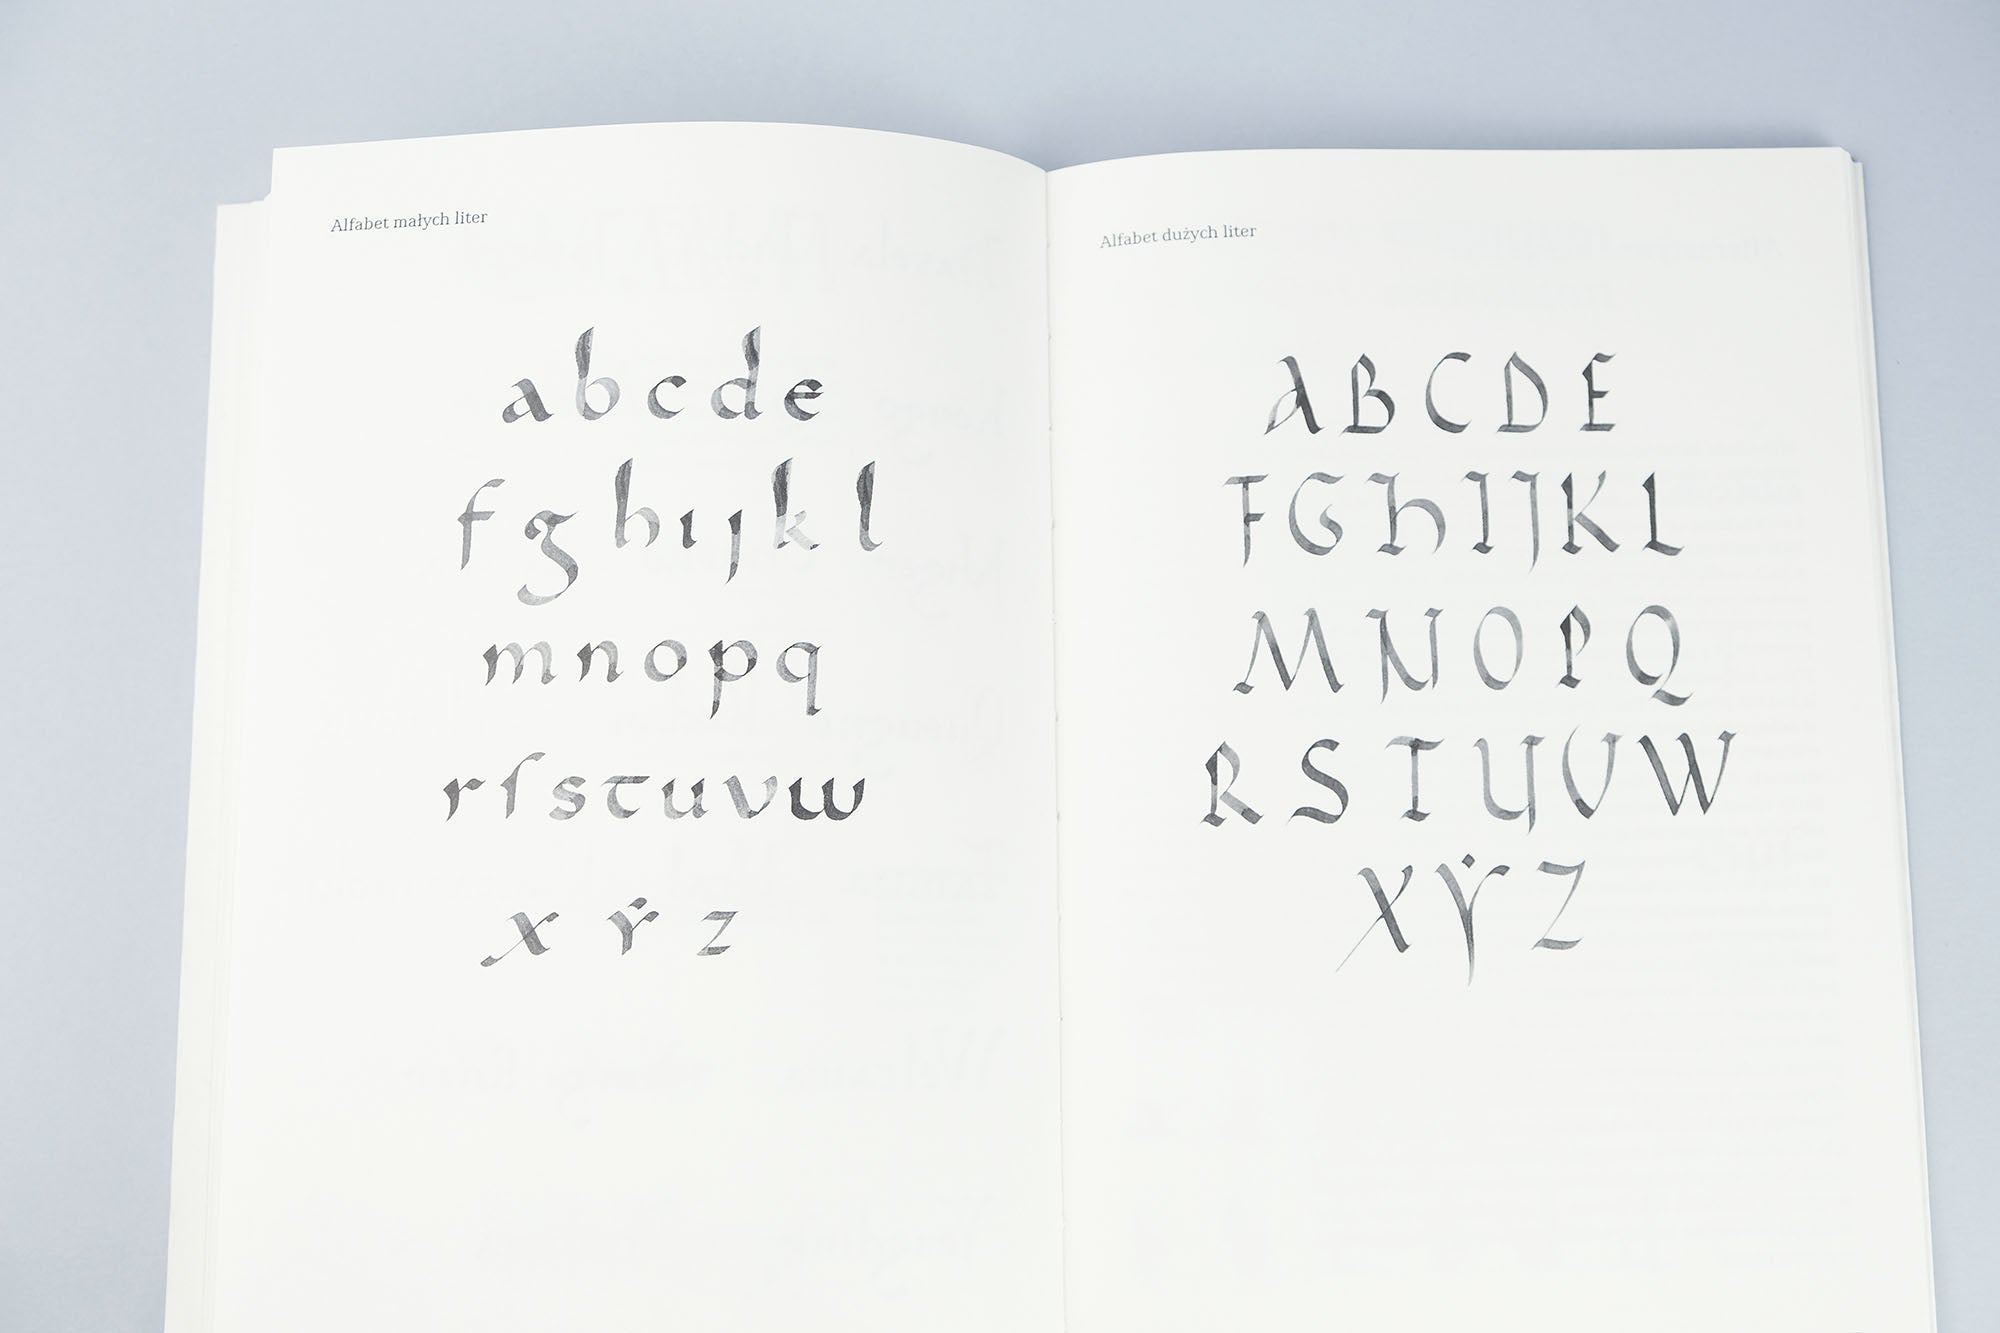 Alfabet małych liter
a b c d e
f g h ı ȷ k l
m n o p q
r ſ s t u v w
x ẏ z
Alfabet dużych liter
A B C D E
F G H I J K L
M N O P Q
R S T U V W
X Ẏ Z